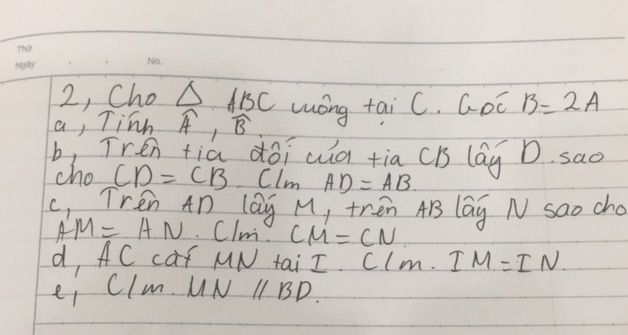 Thứ
Ngày
No.
2, Cho △ ABC vuông tại C. Góc B = 2A
a, Tính Â, B̂.
b, Trên tia đối của tia CB lấy D sao
cho CD = CB. C/m AD = AB.
c, Trên AD lấy M, trên AB lấy N sao cho
AM = AN. C/m. CM = CN.
d, AC cắt MN tại I. C/m. IM = IN.
e, C/m. MN // BD.